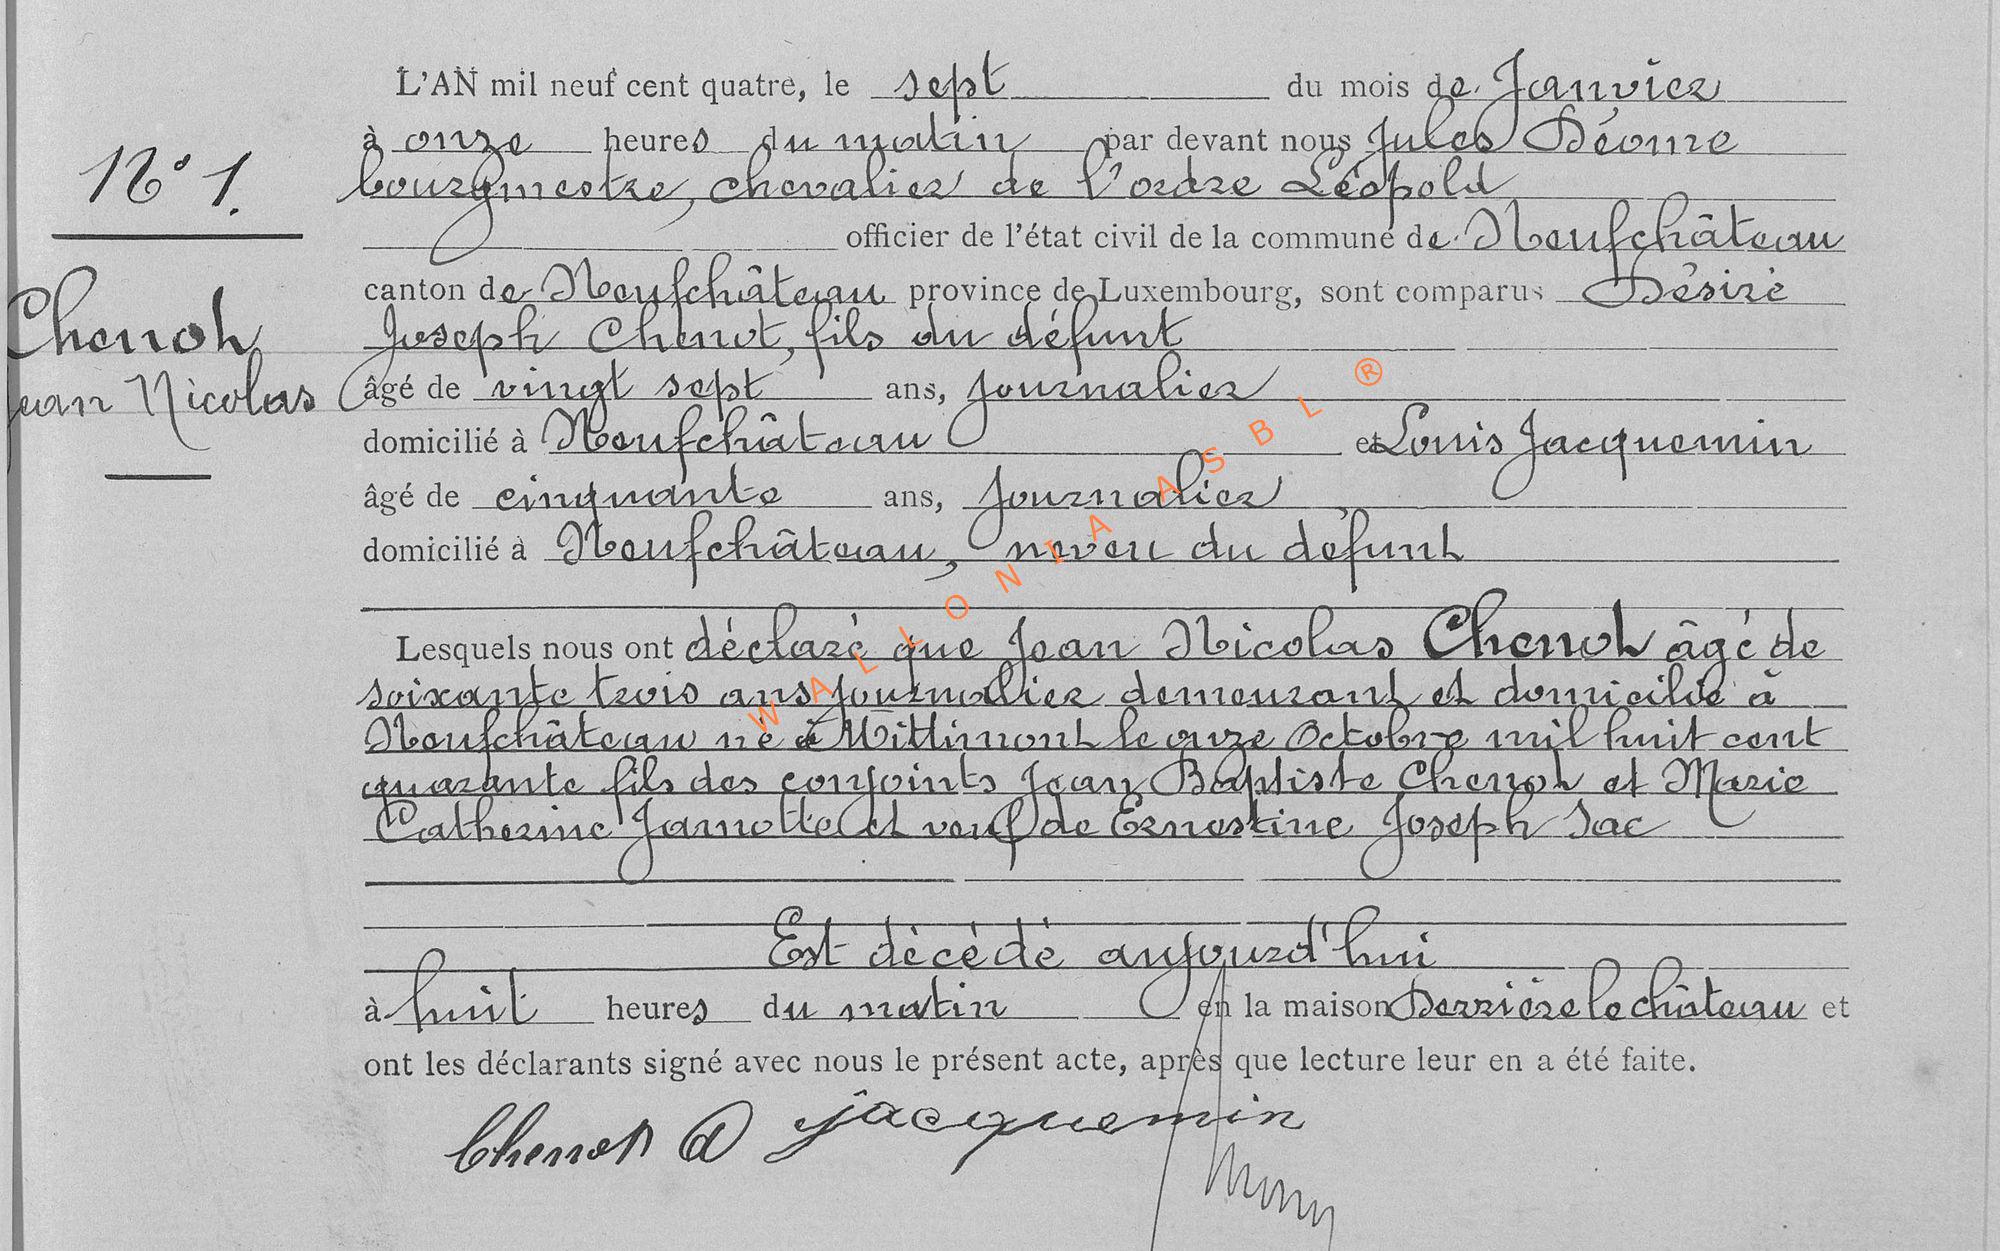 L'AN mil neuf cent quatre, le sept du mois de Janvier
à onze heures du matin par devant nous Jules Déome
bourgmestre, chevalier de l'ordre Léopold
officier de l'état civil de la commune de Neufchâteau
canton de Neufchâteau province de Luxembourg, sont comparus Désiré
Joseph Chenot, fils du défunt
âgé de vingt sept ans, journalier
domicilié à Neufchâteau et Louis Jacquemin
âgé de cinquante ans, journalier
domicilié à Neufchâteau, neveu du défunt
Lesquels nous ont déclaré que Jean Nicolas Chenot âgé de
soixante trois ans journalier demeurant et domicilié à
Neufchâteau né à Wittimont le onze Octobre mil huit cent
quarante fils des conjoints Jean Baptiste Chenot et Marie
Catherine Jamotte et veuf de Ernestine Joseph Sac
Est décédé aujourd'hui
à huit heures du matin en la maison Derrière le château et
ont les déclarants signé avec nous le présent acte, après que lecture leur en a été faite.
Chenot D Jacquemin
N° 1.
Chenot
Jean Nicolas
WALLONIA ASBL ®